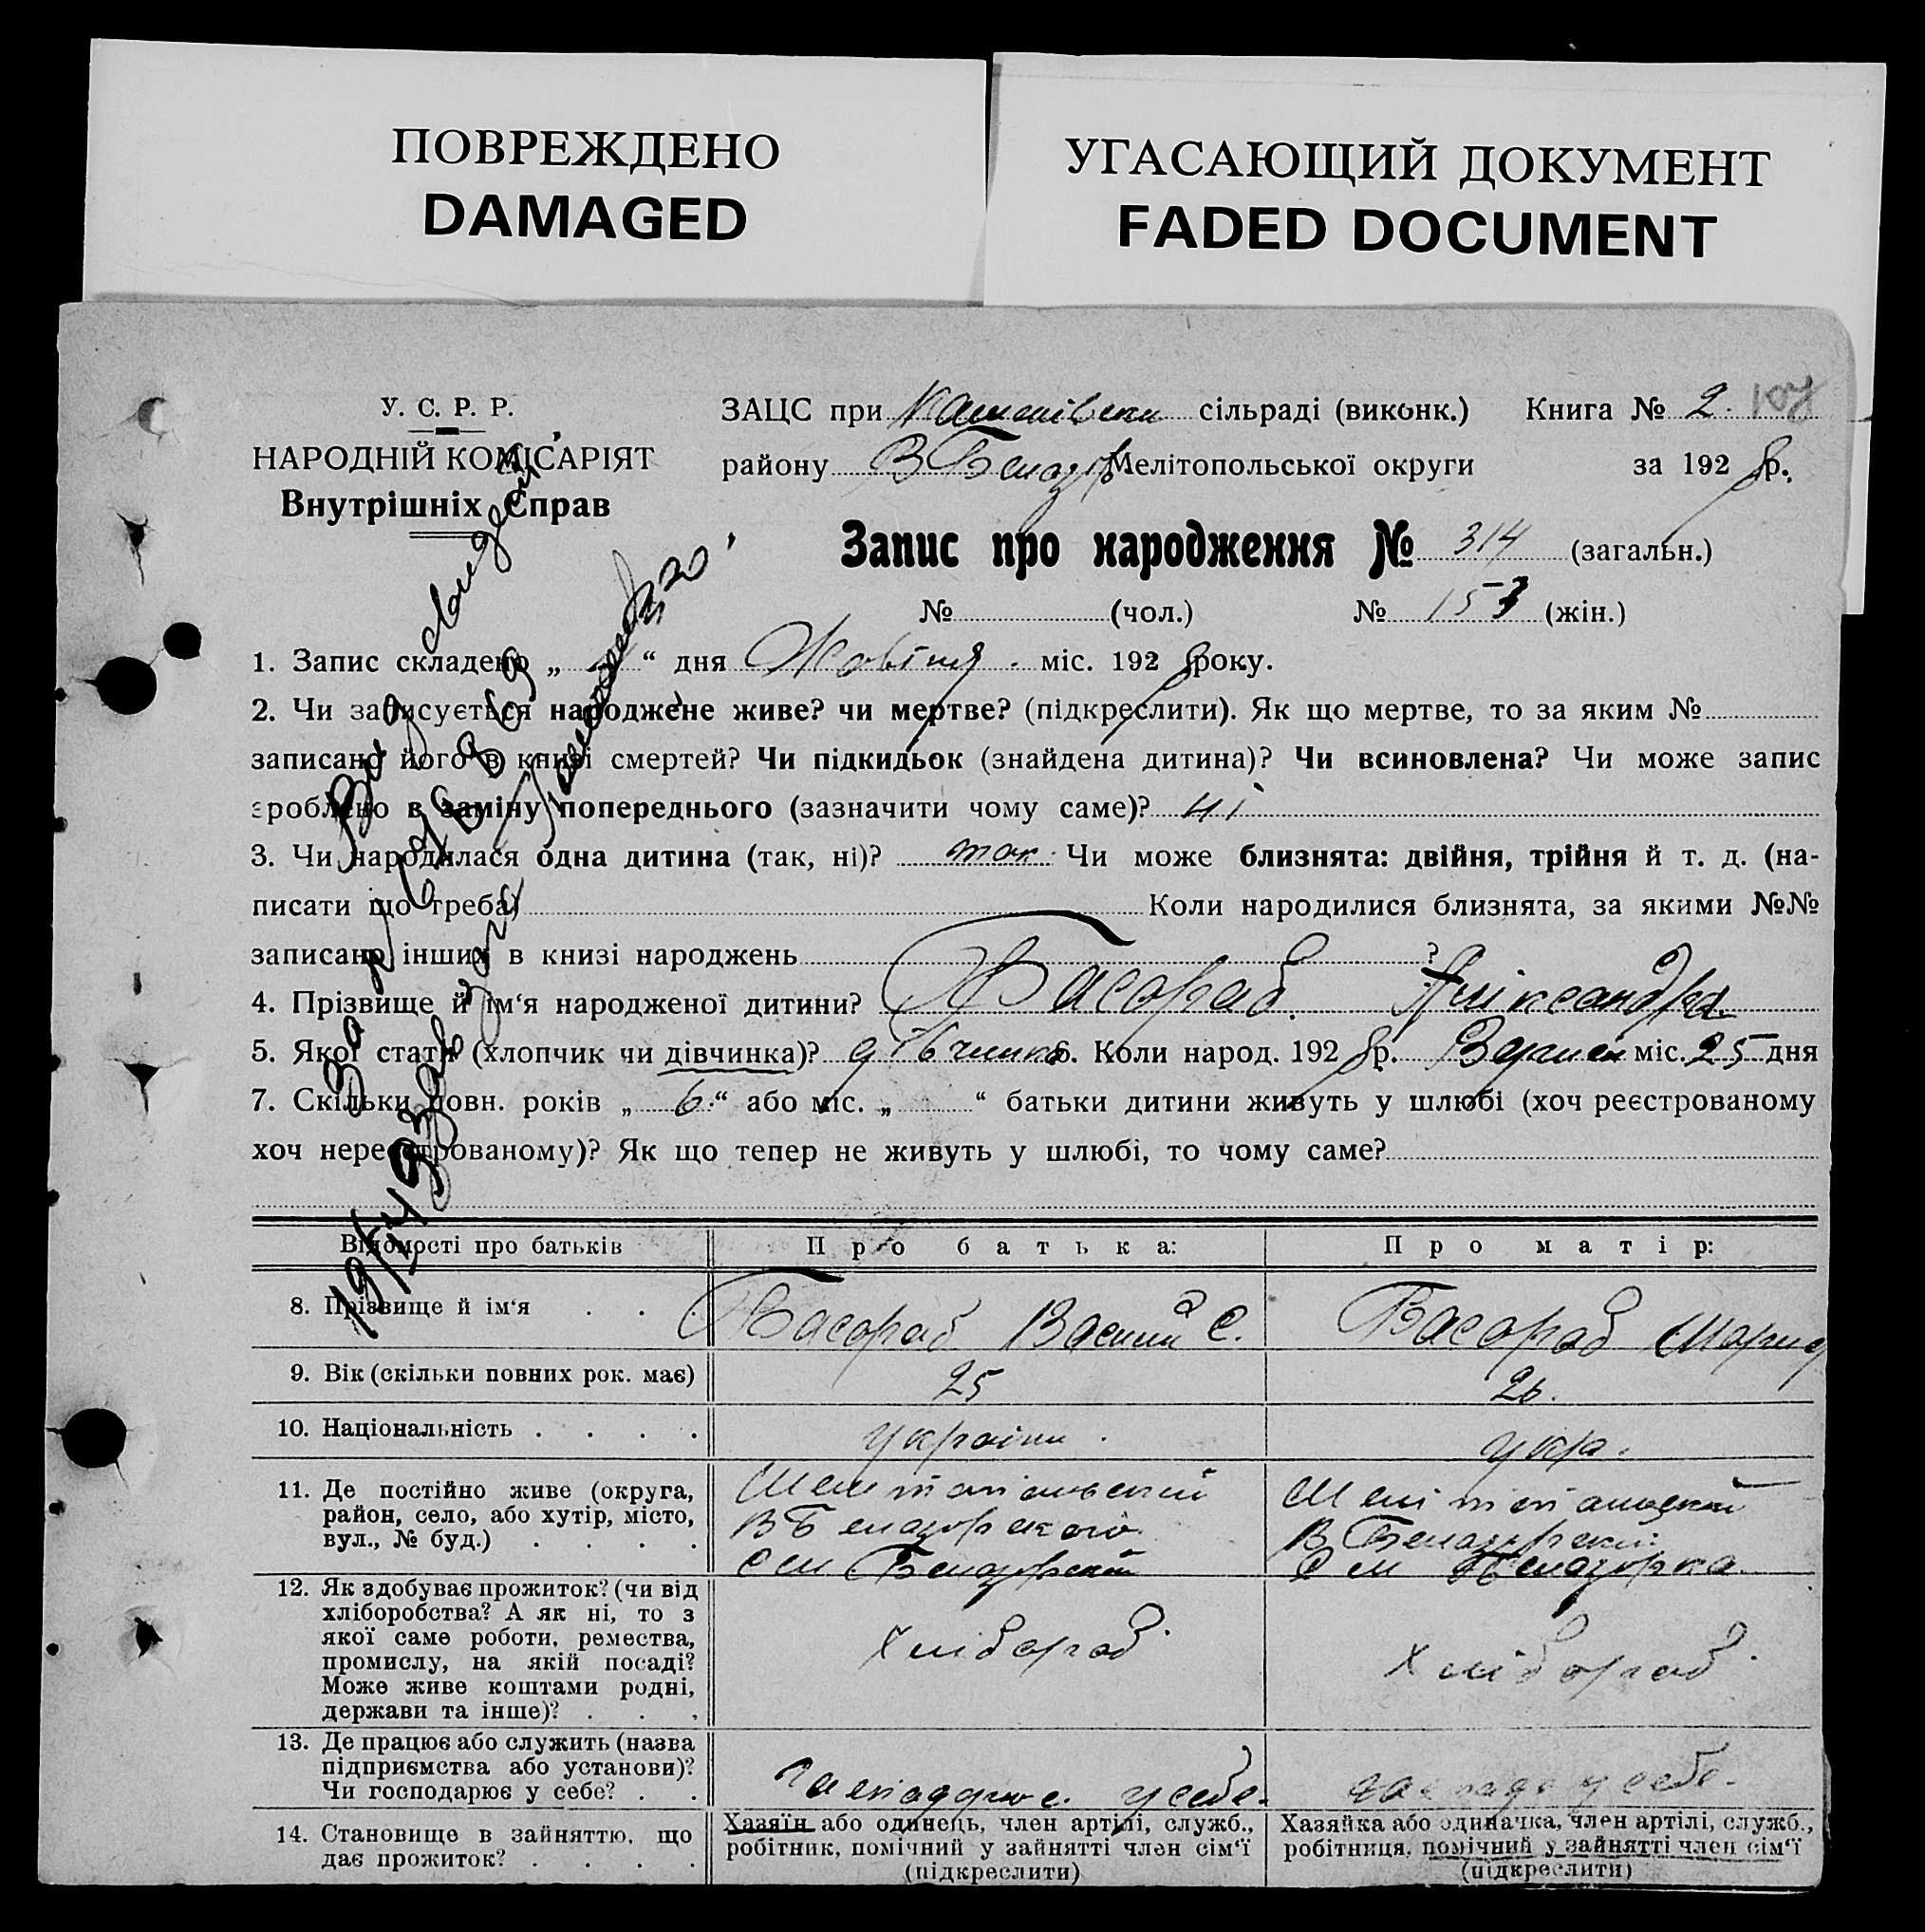 ПОВРЕЖДЕНО
DAMAGED
УГАСАЮЩИЙ ДОКУМЕНТ
FADED DOCUMENT
У. С. Р. Р.
НАРОДНІЙ КОМІСАРІЯТ
Внутрішніх Справ
ЗАЦС при сільраді (виконк.) Книга № 2. 107
району В Білозір Мелітопольської округи за 1928 р.
Запис про народження № 314 (загальн.)
№ (чол.) № 153 (жін.)
1. Запис складено „ “ дня Жовтня міс. 1928 року.
2. Чи записується народжене живе? чи мертве? (підкреслити). Як що мертве, то за яким №
записано його в книзі смертей? Чи підкидьок (знайдена дитина)? Чи всиновлена? Чи може запис
зроблено в заміну попереднього (зазначити чому саме)? ні
3. Чи народилася одна дитина (так, ні)? так Чи може близнята: двійня, трійня й т. д. (на-
писати що треба) Коли народилися близнята, за якими №№
записано інших в книзі народжень ?
4. Прізвище й ім‘я народженої дитини? Басараб Аліксандра
5. Якої статі (хлопчик чи дівчинка)? дівчинка 6. Коли народ. 1928 р. Вересн міс. 25 дня
7. Скільки повн. років „ 6 “ або міс. „ “ батьки дитини живуть у шлюбі (хоч реєстрованому
хоч нереєстрованому)? Як що тепер не живуть у шлюбі, то чому саме?
Відомості про батьків
Про батька:
Про матір:
8. Прізвище й ім‘я . . .
Басараб Василий С.
Басараб Мария
9. Вік (скільки повних рок. має)
25
26.
10. Національність . . . .
україн.
укр.
11. Де постійно живе (округа,
район, село, або хутір, місто,
вул., № буд.) . . . .
12. Як здобуває прожиток? (чи від
хліборобства? А як ні, то з
якої саме роботи, ремества,
промислу, на якій посаді?
Може живе коштами родні,
держави та інше)? . . .
хлібороб
хлібороб
13. Де працює або служить (назва
підприємства або установи)?
Чи господарює у себе? . .
у себе.
у себе.
14. Становище в зайняттю, що
дає прожиток? . . . .
Хазяїн або одинець, член артілі, служб.,
робітник, помічний у зайнятті член сім‘ї
(підкреслити)
Хазяйка або одиначка, член артілі, служб.,
робітниця, помічний у зайнятті член сім‘ї
(підкреслити)